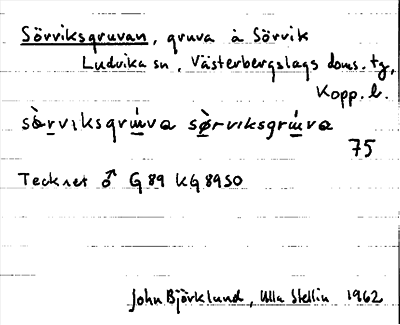 Sörviksgruvan, gruva å Sörvik
Ludvika sn, Västerbergslags doms. tg,
Kopp. l.
sὰrviksgrúva sø̀rviksgrúva
75
Tecknet ♂ G 89 KG 8950
John Björklund, Ulla Stellin 1962